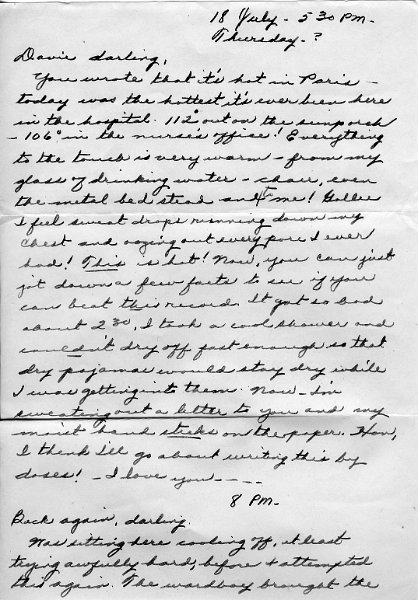 18 July - 5 30 PM.
Thursday - ?
Davie darling,
You wrote that it's hot in Paris -
today was the hottest it's ever been here
in the hospital. 112° out on the sunporch
- 106° in the nurse's office! Everything
to the touch is very warm - from my
glass of drinking water - chair, even
the metal bed stead and me! Gollee
I feel sweat drops running down my
chest and oozing out every pore I ever
had! This is hot! Now, you can just
jot down a few facts to see if you
can beat this record. It got so bad
about 2 30, I took a cool shower and
couldn't dry off fast enough so that
dry pajamas would stay dry while
I was getting into them. Now - I'm
sweating out a letter to you and my
moist hand sticks on the paper. Hon,
I think I'll go about writing this by
doses! - I love you - - - -
8 PM -
Back again, darling.
Was sitting here cooling off, at least
trying awfully hard, before I attempted
this again. The wardboy brought the